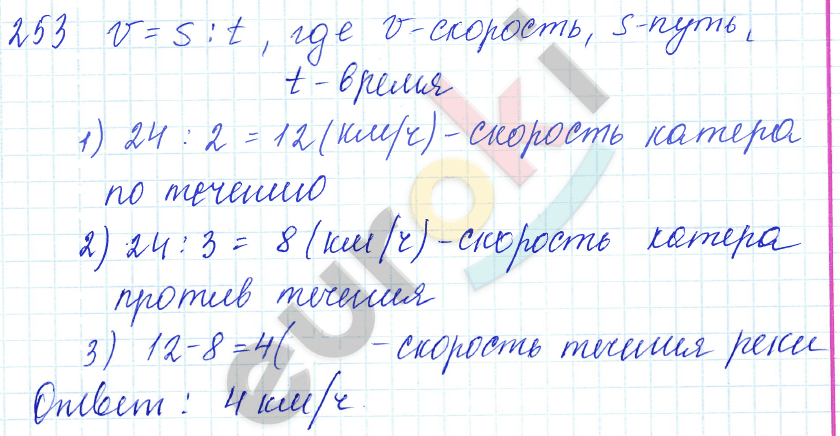 253 v = s : t, где v-скорость, s-путь,
t - время
1) 24 : 2 = 12 (км/ч) - скорость катера
по течению
2) 24 : 3 = 8 (км/ч) - скорость катера
против течения
3) 12 - 8 = 4 ( - скорость течения реки
Ответ: 4 км/ч.
euroki